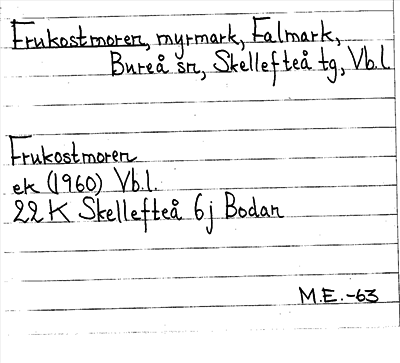 Frukostmoren, myrmark, Falmark,
Bureå sn, Skellefteå tg, Vb.l
Frukostmoren
ek (1960) Vb.l.
22 K Skellefteå 6j Bodan
M.E.-63